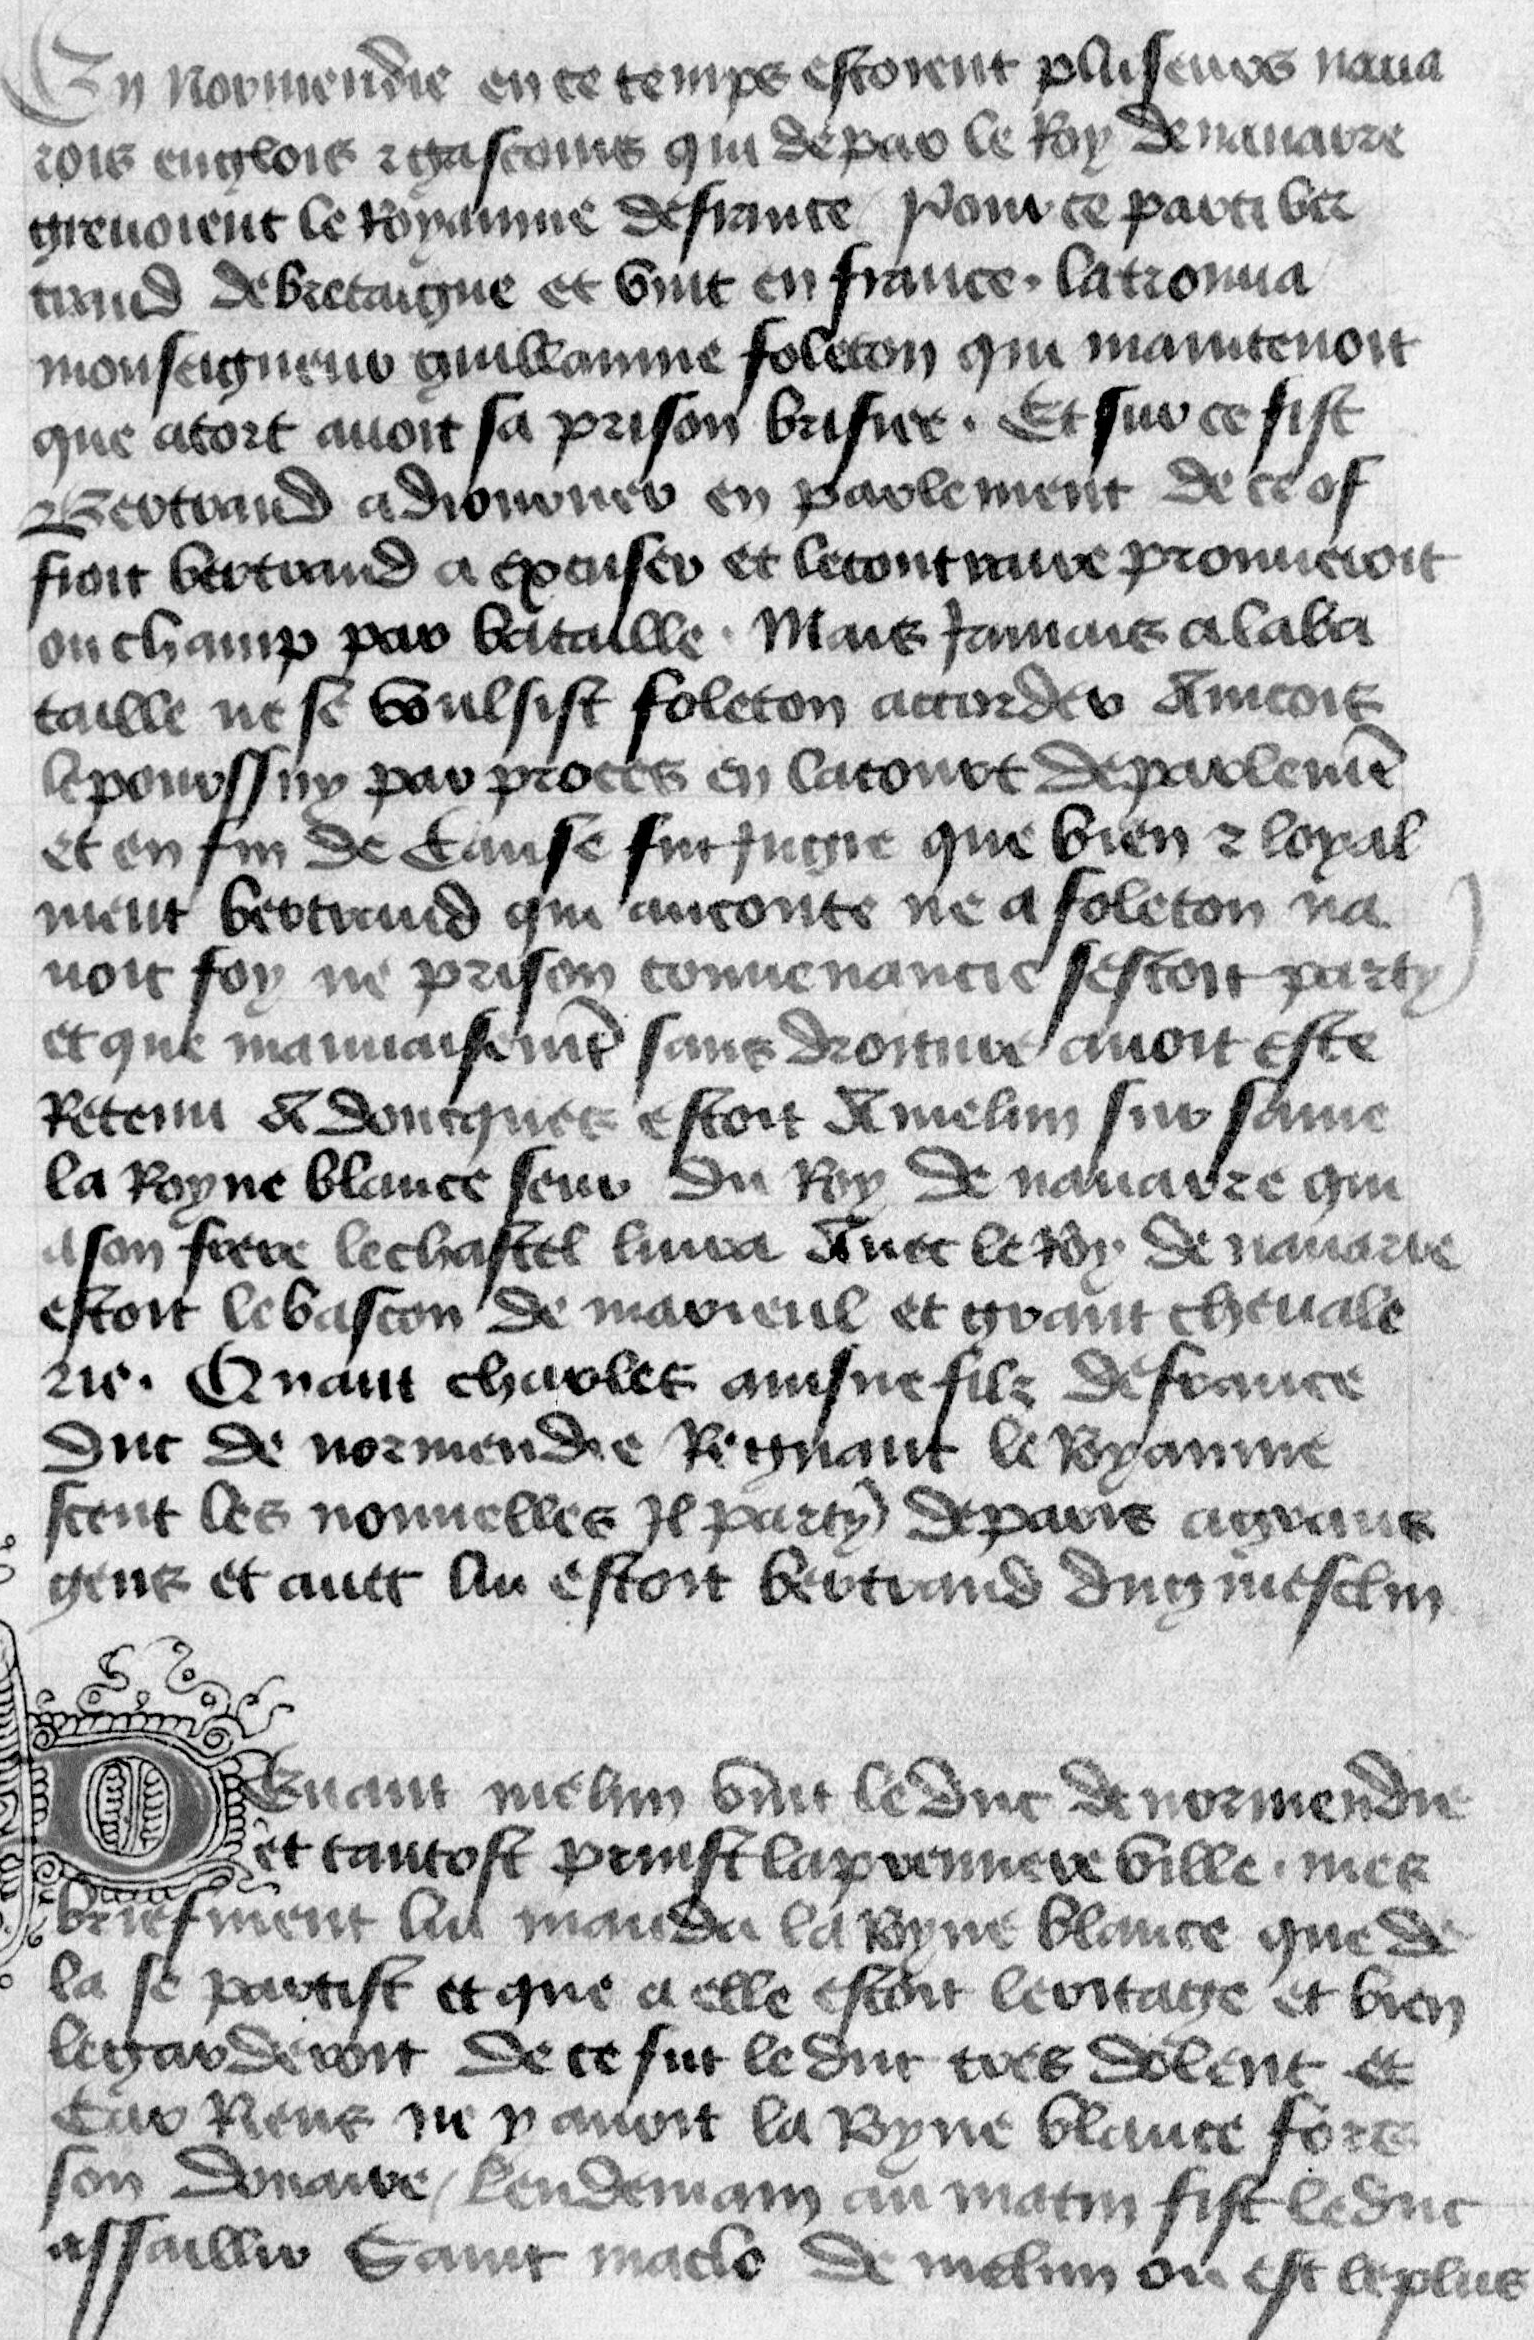 En Normendie en ce temps estoient pluiseurs naua
rois englois ⁊ gascoins qui de par le Roy de nauarre
greuoient le Royaume de france / Pour ce parti ber
trand de bretaigne et vint en france . la trouua
monseigneur guillaume foleton qui maintenoit
que a tort auoit sa prison brisiee . Et sur ce fist
Bertrand adiourner en parlement de ce of
froit bertrand a excuser et le contraire prouueroit
ou champ par bataille . Mais Jamais a la ba
taille ne se voulsist foleton accorder Aincois
le pourssuy par proces en la court de parlemēt
et en fin de Cause fut Jugie que bien ⁊ loyal
ment bertrand qui au conte ne a foleton na
uoit foy ne prison conuenancie sestoit party
et que mauuaisemēt sans droiture auoit este
Retenu Adoncques estoit A melun sur saine
la Royne blance seur du Roy de nauarre qui
a son frere le chastel liura Auec le Roy de nauarre
estoit le bascon de marieul et grant cheuale
rie . Quant charles ainsne filz de france
duc de normendie Regnant le Royaume
sceut les nouuelles Il party de paris a grans
gens et auec lui estoit bertrand du guiesclin
DEuant melun vint le duc de normendie
et tantost prinst la premiere ville . mes
briefment lui manda la Royne blance que de
la se partist et que a elle estoit leritage et bien
le garderoit De ce fut le duc tres dolent et
Car Riens ne y auoit la Royne blance fors
son douaire / Lendemain au matin fist le duc
assaillir Saint maclo de melun ou est le plus